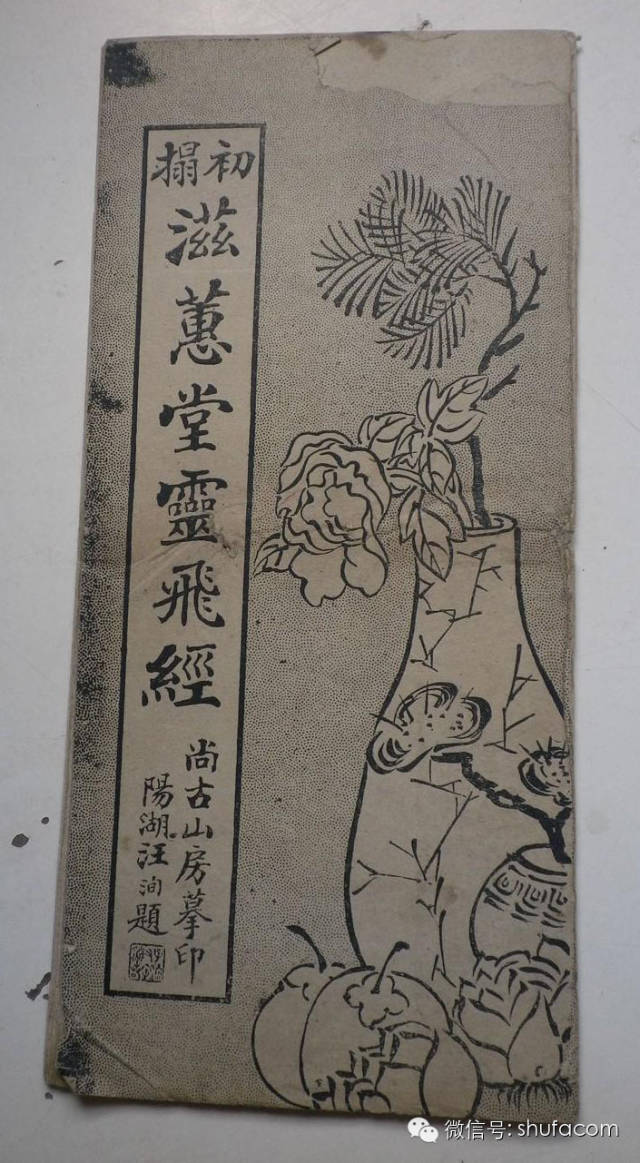 初搨
滋蕙堂靈飛經
尚古山房摹印
陽湖汪洵題
微信号: shufacom